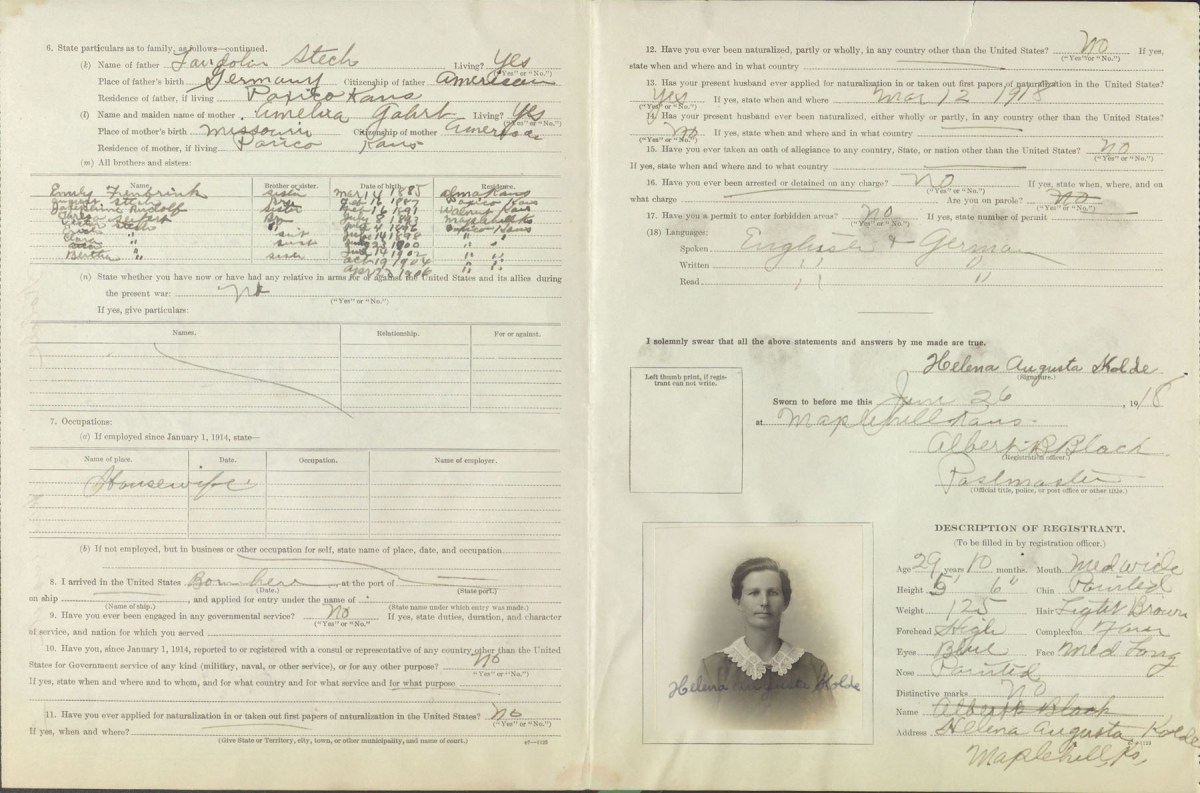 6. State particulars as to family, as follows—continued.
(k) Name of father Stech Living? Yes
("Yes" or "No.")
Place of father's birth Germany Citizenship of father American
Residence of father, if living Paxico Kans
(l) Name and maiden name of mother Living? Yes
("Yes" or "No.")
Place of mother's birth Missouri Citizenship of mother America
Residence of mother, if living Paxico Kans
(m) All brothers and sisters:
Name. Brother or sister. Date of birth. Residence.
Emily sister Mar 4 1885 Alma Kans
August Stech Bro Feb 16 1887 Paxico Kans
Josephine Rudolf sister 1891
Seifert Maplehill Ks
Stech Paxico Kans
Clara "
Bertha " sister
(n) State whether you have now or have had any relative in arms for or against the United States and its allies during
the present war: No
("Yes" or "No.")
If yes, give particulars:
Names. Relationship. For or against.
7. Occupations:
(a) If employed since January 1, 1914, state—
Name of place. Date. Occupation. Name of employer.
Housewife
(b) If not employed, but in business or other occupation for self, state name of place, date, and occupation.
8. I arrived in the United States Born here, at the port of
(Date.) (State port.)
on ship, and applied for entry under the name of
(Name of ship.) (State name under which entry was made.)
9. Have you ever been engaged in any governmental service? No If yes, state duties, duration, and character
("Yes" or "No."
of service, and nation for which you served
10. Have you, since January 1, 1914, reported to or registered with a consul or representative of any country other than the United
States for Government service of any kind (military, naval, or other service), or for any other purpose? No
("Yes" or "No.")
If yes, state when and where and to whom, and for what country and for what service and for what purpose
11. Have you ever applied for naturalization in or taken out first papers of naturalization in the United States? No
("Yes" or "No.")
If yes, when and where?
(Give State or Territory, city, town, or other municipality, and name of court.)
12. Have you ever been naturalized, partly or wholly, in any country other than the United States? No If yes,
("Yes" or "No.")
state when and where and in what country
13. Has your present husband ever applied for naturalization in or taken out first papers of naturalization in the United States?
Yes If yes, state when and where Mar 12 1918
("Yes" or "No.")
14. Has your present husband ever been naturalized, either wholly or partly, in any country other than the United States?
No If yes, state when and where and in what country
("Yes" or "No.")
15. Have you ever taken an oath of allegiance to any country, State, or nation other than the United States? No
("Yes" or "No.")
If yes, state when and where and to what country
16. Have you ever been arrested or detained on any charge? No If yes, state when, where, and on
("Yes" or "No.")
what charge Are you on parole? No
("Yes" or "No.")
17. Have you a permit to enter forbidden areas? No If yes, state number of permit
("Yes" or "No.")
(18) Languages:
Spoken English & German
Written " "
Read " "
I solemnly swear that all the above statements and answers by me made are true.
Helena Augusta Kolde
(Signature.)
Left thumb print, if regis-
trant can not write.
Sworn to before me this June 26, 1918
at Maplehill Kans.
Albert B Block
(Registration officer.)
Postmaster
(Official title, police, or post office or other title.)
Helena Augusta Kolde
DESCRIPTION OF REGISTRANT.
(To be filled in by registration officer.)
Age 29 years 10 months. Mouth Med wide
Height 5' 6" Chin Pointed
Weight 125 Hair Light Brown
Forehead High Complexion
Eyes Blue Face Med Long
Nose Pointed
Distinctive marks no
Name Albert B Block
Address Helena Augusta Kolde
Maplehill, Ks,